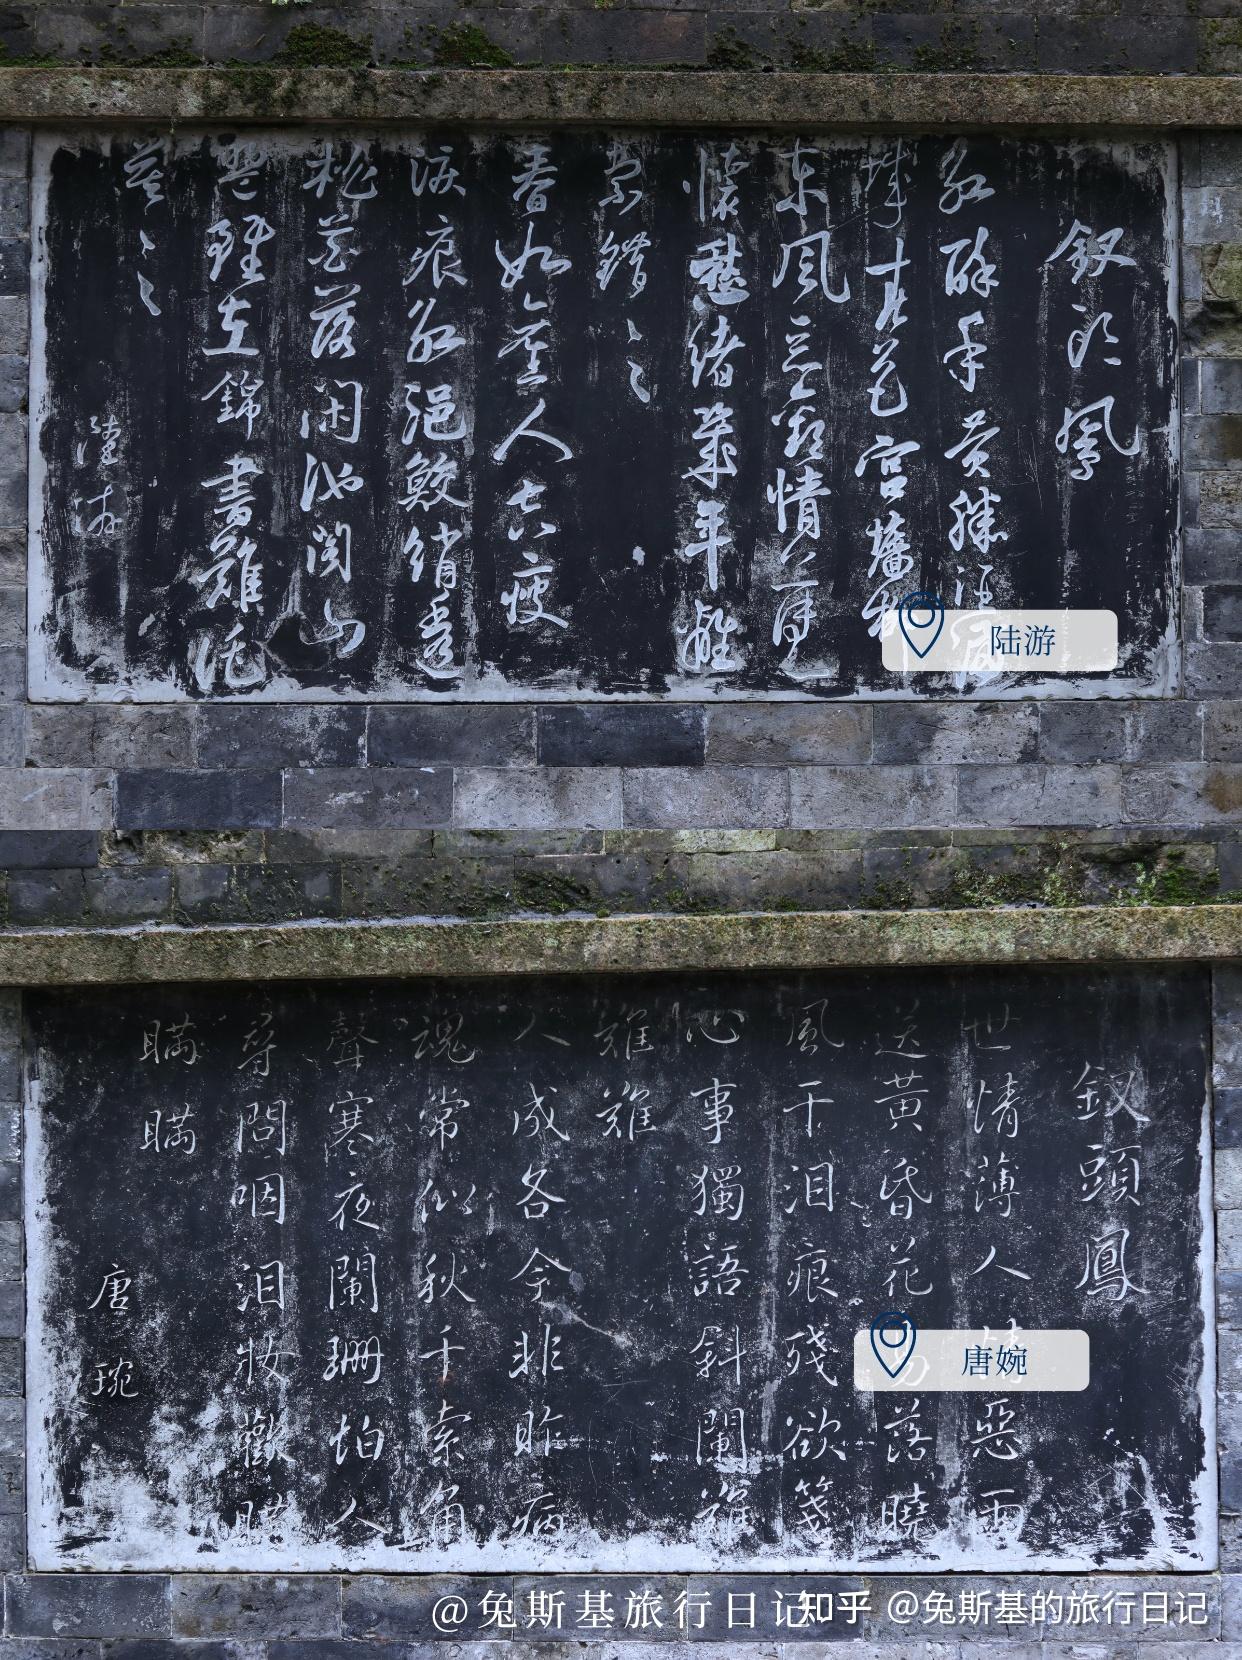 釵頭鳳
紅酥手黄縢酒滿
城春色宫墻柳
東風惡歡情薄一
懷愁緒幾年離
索錯〻〻
春如舊人空瘦
淚痕紅浥鮫綃透
桃花落閑池閣山
盟雖在錦書難托
莫〻〻
陸游
陆游
釵頭鳳
世情薄人情惡雨
送黃昏花易落曉
風干泪痕殘欲箋
心事獨語斜闌難
難難
人成各今非昨病
魂常似秋千索角
聲寒夜闌珊怕人
尋問咽泪妝歡瞞
瞞瞞
唐琬
唐婉
@兔斯基旅行日记
知乎 @兔斯基的旅行日记